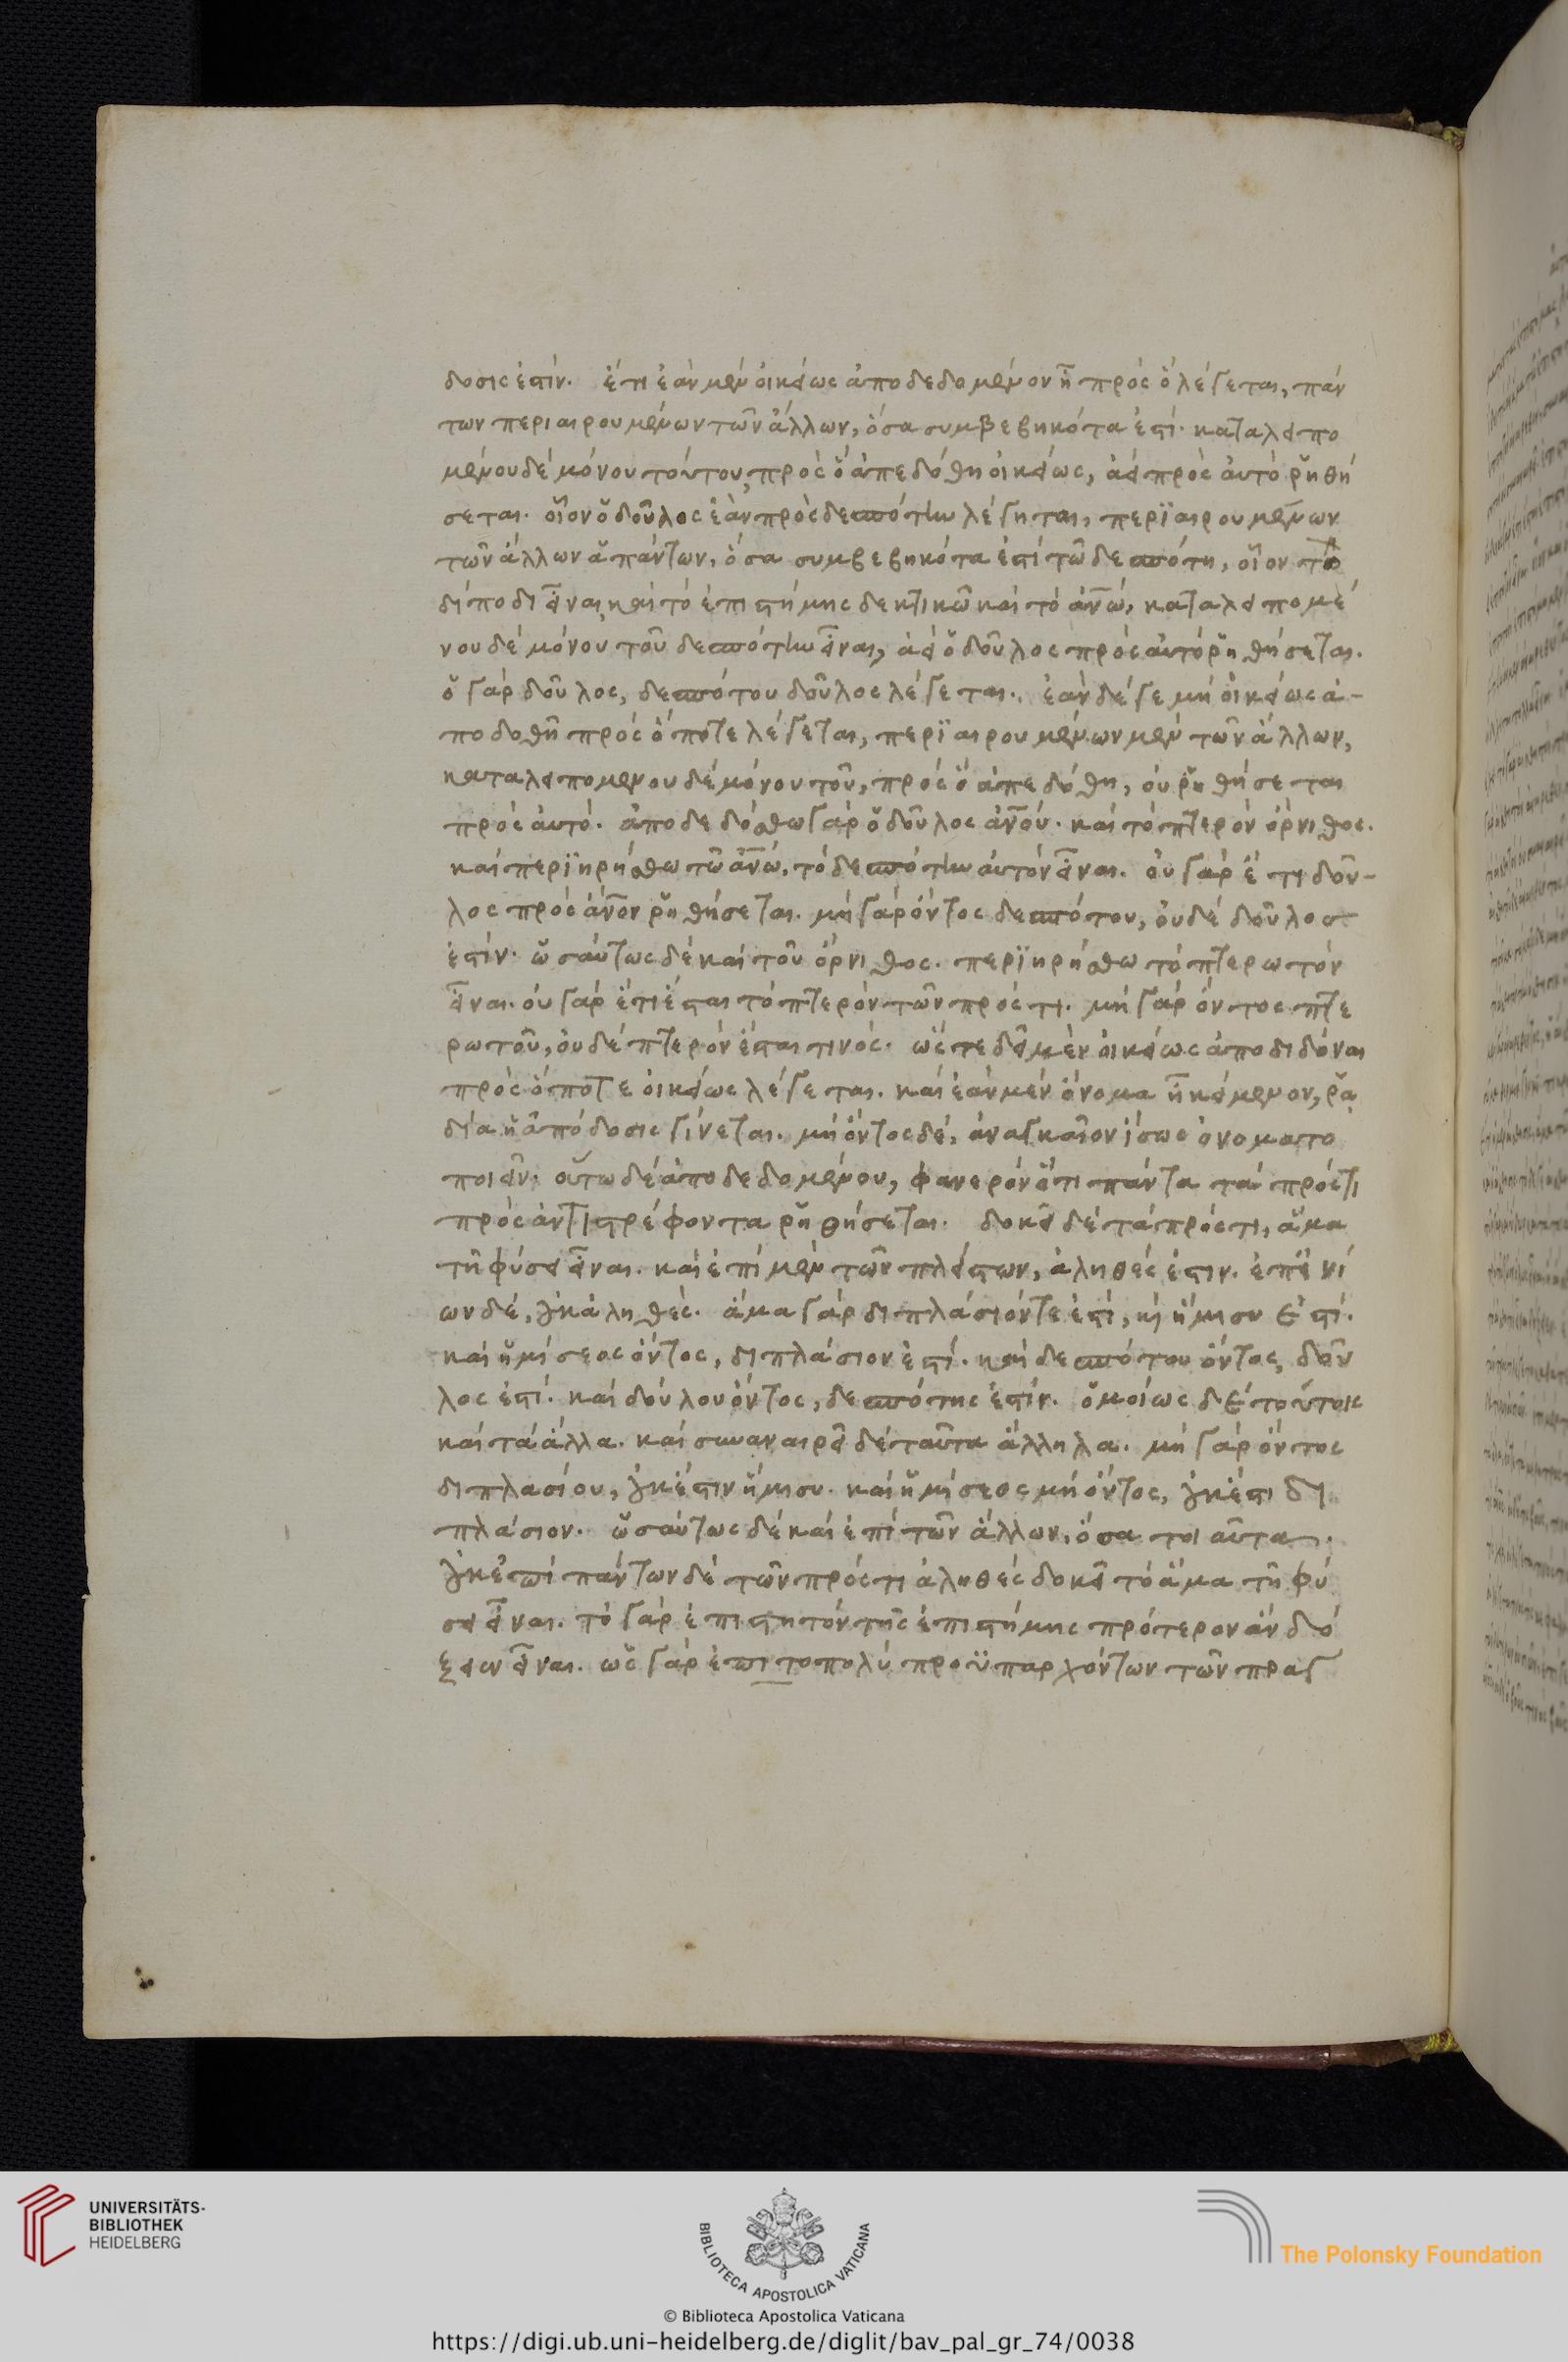 δοσις ἐστίν. ἔτι ἐὰν μὲν οἰκείως ἀποδεδομένον ἦ πρὸς ὃ λέγεται, πάν
των περιαιρουμένων τῶν ἄλλων, ὅσα συμβεβηκότα ἐστί. καταλειπο
μένου δὲ μόνου τούτου, πρὸς ὃ ἀπεδόθη οἰκείως, ἀεὶ πρὸς αὐτὸ ῥηθή
σεται. οἷον ὁ δοῦλος ἐὰν πρὸς δεσπότην λέγηται, περϊαιρουμένων
τῶν ἄλλων ἁπάντων, ὅσα συμβεβηκότα ἐστὶ τῶ δεσπότη, οἷον τὸ
δίποδι εἶναι, καὶ τὸ ἐπιστήμης δεκτικῶ καὶ τὸ ἀν̅ω̅, καταλειπομέ
νου δὲ μόνου, τοῦ δεσπότην εἶναι, ἀεὶ ὁ δοῦλος πρὸς αὐτὸ ῥηθήσεται.
ὁ γὰρ δοῦλος, δεσπότου δοῦλος λέγεται. ἐὰν δέ γε μὴ οἰκείως ἀ-
ποδοθῆ πρὸς ὅ ποτε λέγεται, περϊαιρουμένων μὲν τῶν ἄλλων,
καταλειπομένου δὲ μόνου τοῦ, πρὸς ὃ ἀπεδόθη, οὐ ῥηθήσεται
πρὸς αὐτό. ἀποδεδόσθω γὰρ ὁ δοῦλος ἀν̅ου̅. καὶ τὸ πτερὸν ὄρνιθος.
καὶ περϊηρήσθω τῶ ἀν̅ω̅, τὸ δεσπότην αὐτὸν εἶναι. οὐ γὰρ ἔτι δοῦ-
λος πρὸς ἄν̅ο̅ν ῥηθήσεται. μὴ γὰρ ὄντος δεσπότου, οὐδὲ δοῦλος
ἐστίν. ὡσαύτως δὲ καὶ τοῦ ὄρνιθος. περϊηρήσθω τὸ πτερωτὸν
εἶναι. οὐ γὰρ ἔτι ἔσται τὸ πτερὸν τῶν πρός τι. μὴ γὰρ ὄντος πτε
ρωτοῦ, οὐδὲ πτερὸν ἔσται τινός. ὥστε δεῖ μὲν οἰκείως ἀποδιδόναι
πρὸς ὅ ποτε οἰκείως λέγεται. καὶ ἐὰν μὲν ὄνομα ἦ κείμενον, ῥα
δία ἡ ἀπόδοσις γίνεται. μὴ ὄντος δέ, ἀναγκαῖον ἴσως ὀνοματο
ποιεῖν. οὕτω δὲ ἀποδεδομένου, φανερὸν ὅτι πάντα τὰ πρός τι
πρὸς ἀντιστρέφοντα ῥηθήσεται. δοκεῖ δὲ τὰ πρός τι, ἅμα
τῆ φύσει εἶναι. καὶ ἐπὶ μὲν τῶν πλείστων, ἀληθές ἐστιν. ἐπ' ἐνί
ων δέ, οὐκ ἀληθές. ἅμα γὰρ διπλάσιόν τε ἐστί, κὶ ἥμισυ ἐστί.
καὶ ἡμίσεος ὄντος, διπλάσιον ἐστί. καὶ δεσπότου ὄντος, δοῦ
λος ἐστί. καὶ δούλου ὄντος, δεσπότης ἐστίν. ὁμοίως δὲ τούτοις
καὶ τὰ ἄλλα. καὶ συναναιρεῖ δὲ ταῦτα ἄλληλα. μὴ γὰρ ὄντος
διπλασίου, οὐκ ἔστιν ἥμισυ. καὶ ἡμίσεος μὴ ὄντος, οὐκ ἔστι δι
πλάσιον. ὡσαύτως δὲ καὶ ἐπὶ τῶν ἄλλων, ὅσα τοιαῦτα.
οὐκ ἐπὶ πάντων δὲ τῶν πρός τι ἀληθὲς δοκεῖ τὸ ἅμα τῆ φύ
σει εἶναι. τὸ γὰρ ἐπιστητὸν τῆς ἐπιστήμης πρότερον ἂν δό
ξειεν εἶναι. ὡς γὰρ ἐπιτοπολὺ προϋπαρχόντων τῶν πραγ
UNIVERSITÄTS-
BIBLIOTHEK
HEIDELBERG
BIBLIOTECA APOSTOLICA VATICANA
The Polonsky Foundation
© Biblioteca Apostolica Vaticana
https://digi.ub.uni-heidelberg.de/diglit/bav_pal_gr_74/0038